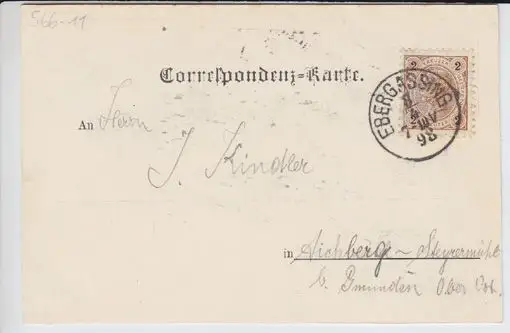 566-11
Correspondenz-Karte.
2 2
EBERGASSING
7
98
An Herrn
J. Kindler
in Aichberg - Steyrermühl
b. Gmunden Ober Öst.